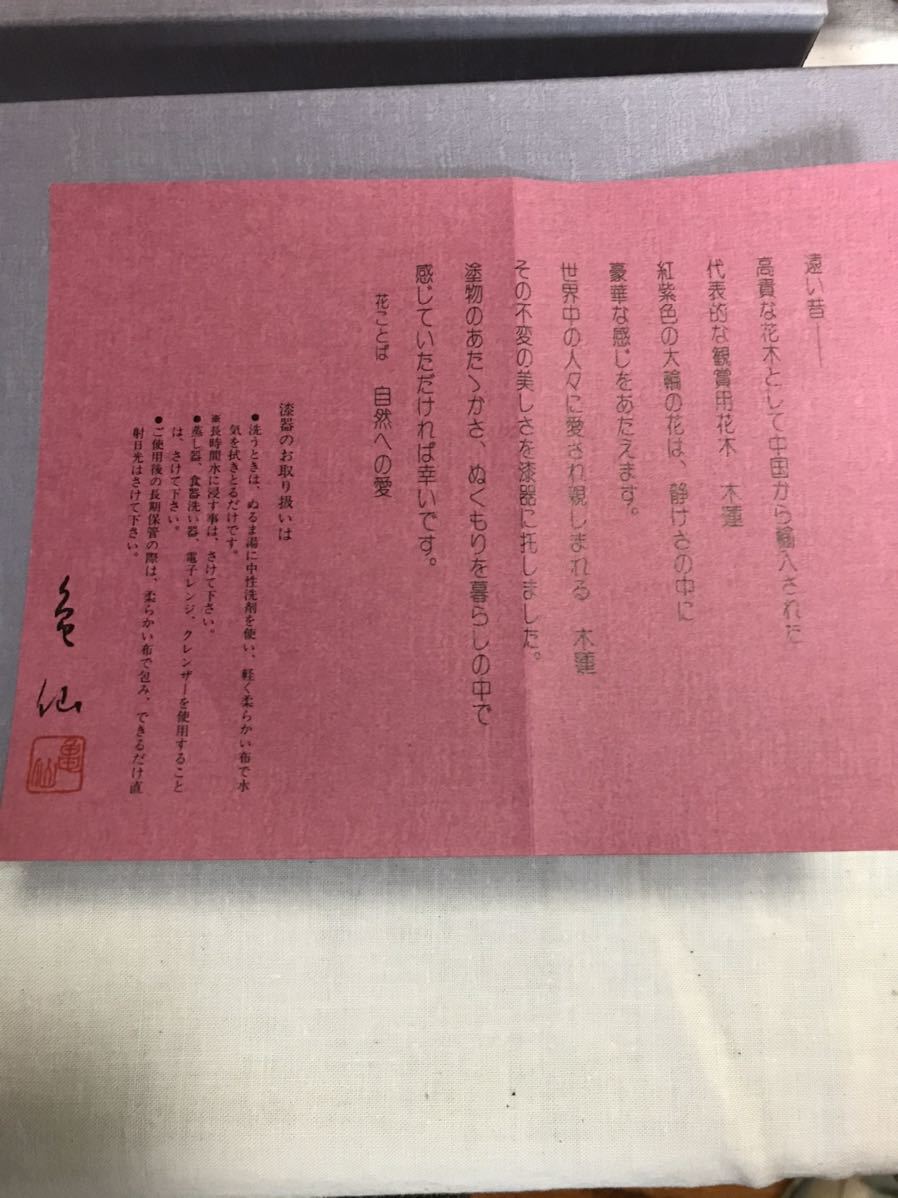 遠い昔――
高貴な花木として中国から輸入された
代表的な観賞用花木　木蓮
紅紫色の大輪の花は、静けさの中に
豪華な感じをあたえます。
世界中の人々に愛され親しまれる　木蓮
その不変の美しさを漆器に托しました。
塗物のあたゝかさ、ぬくもりを暮らしの中で
感じていただければ幸いです。
花ことば　自然への愛
漆器のお取り扱いは
●洗うときは、ぬるま湯に中性洗剤を使い、軽く柔らかい布で水
気を拭きとるだけです。
※長時間水に浸す事は、さけて下さい。
●蒸し器、食器洗い器、電子レンジ、クレンザーを使用すること
は、さけて下さい。
●ご使用後の長期保管の際は、柔らかい布で包み、できるだけ直
射日光はさけて下さい。
亀仙
亀仙